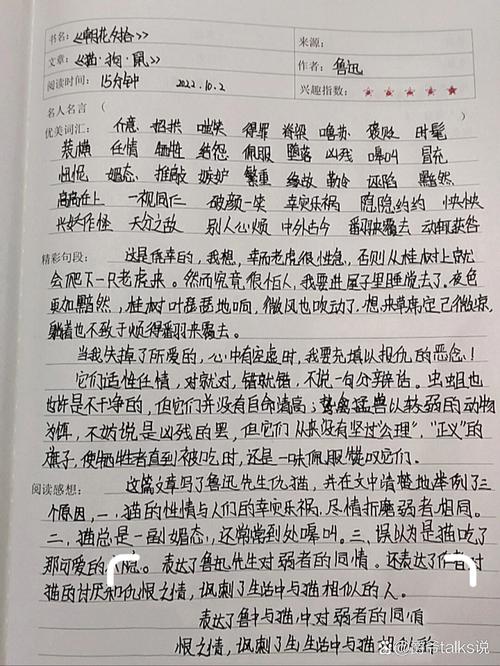 书名:《朝花夕拾》 来源:
文章:《猫·狗·鼠》 作者: 鲁迅
阅读时间: 15分钟 2022.10.2 兴趣指数: ★★★★★
名人名言(
优美词汇: 介意 招供 嗤笑 得罪 脊梁 噜苏 褒贬 时髦
装横 任情 牺牲 结怨 佩服 堕落 凶残 嗥叫 冒充
忸怩 媚态 推敲 嫉妒 繁重 缘故 勒令 诬陷 黯然
高高在上 一视同仁 破颜一笑 幸灾乐祸 隐隐约约 怏怏
兴妖作怪 天分之故 别人心烦 中外古今 翻来覆去 动辄获咎
精彩句段: 这是侥幸的,我想,幸而老虎很性急,否则从桂树上就
会爬下一只老虎来。然而究竟很怕人,我要进屋子里睡觉去了。夜色
更加黯然,桂树叶瑟瑟地响,微风也吹动了,想来草席定已微凉,
躺着也不致于烦得翻来覆去。
当我失掉了所爱的,心中有空虚时,我要充填以报仇的恶念!
它们适性任情,对就对,错就错,不说一句分辩话。虫蛆也
也许是不干净的,但它们并没有自命清高;鸷禽猛兽以较弱的动物
为饵,不妨说是凶残的罢,但它们从来没有竖过"公理","正义"的
旗子,使牺牲者直到被吃时,还是一味佩服赞叹它们。
阅读感想: 这篇文章写了鲁迅先生仇猫,并在文中清楚地举例了三
个原因,一.猫的性情与人们的幸灾乐祸,尽情折磨弱者相同。
二、猫总是一副媚态,还常常到处嗥叫。三、误以为是猫吃了
那可爱的。表达了鲁迅先生对弱者的同情。还表达了作者对
猫的讨厌和仇恨之情,讽刺了生活中与猫相似的人。
表达了鲁中与猫,中对弱者的同情
恨之情,讽刺了生生活中与猫
talks说